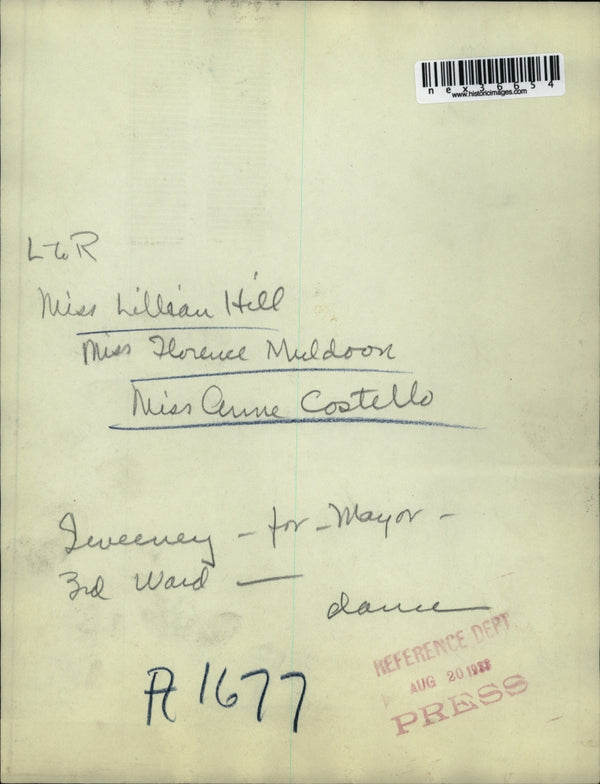 nex36654
www.historicimages.com
L to R
Miss Lillian Hill
Miss Florence Muldoon
Miss Anne Costello
Sweeney - for - Mayor -
3rd Ward —
dance
A1677
REFERENCE DEPT.
AUG 20 1933
PRESS